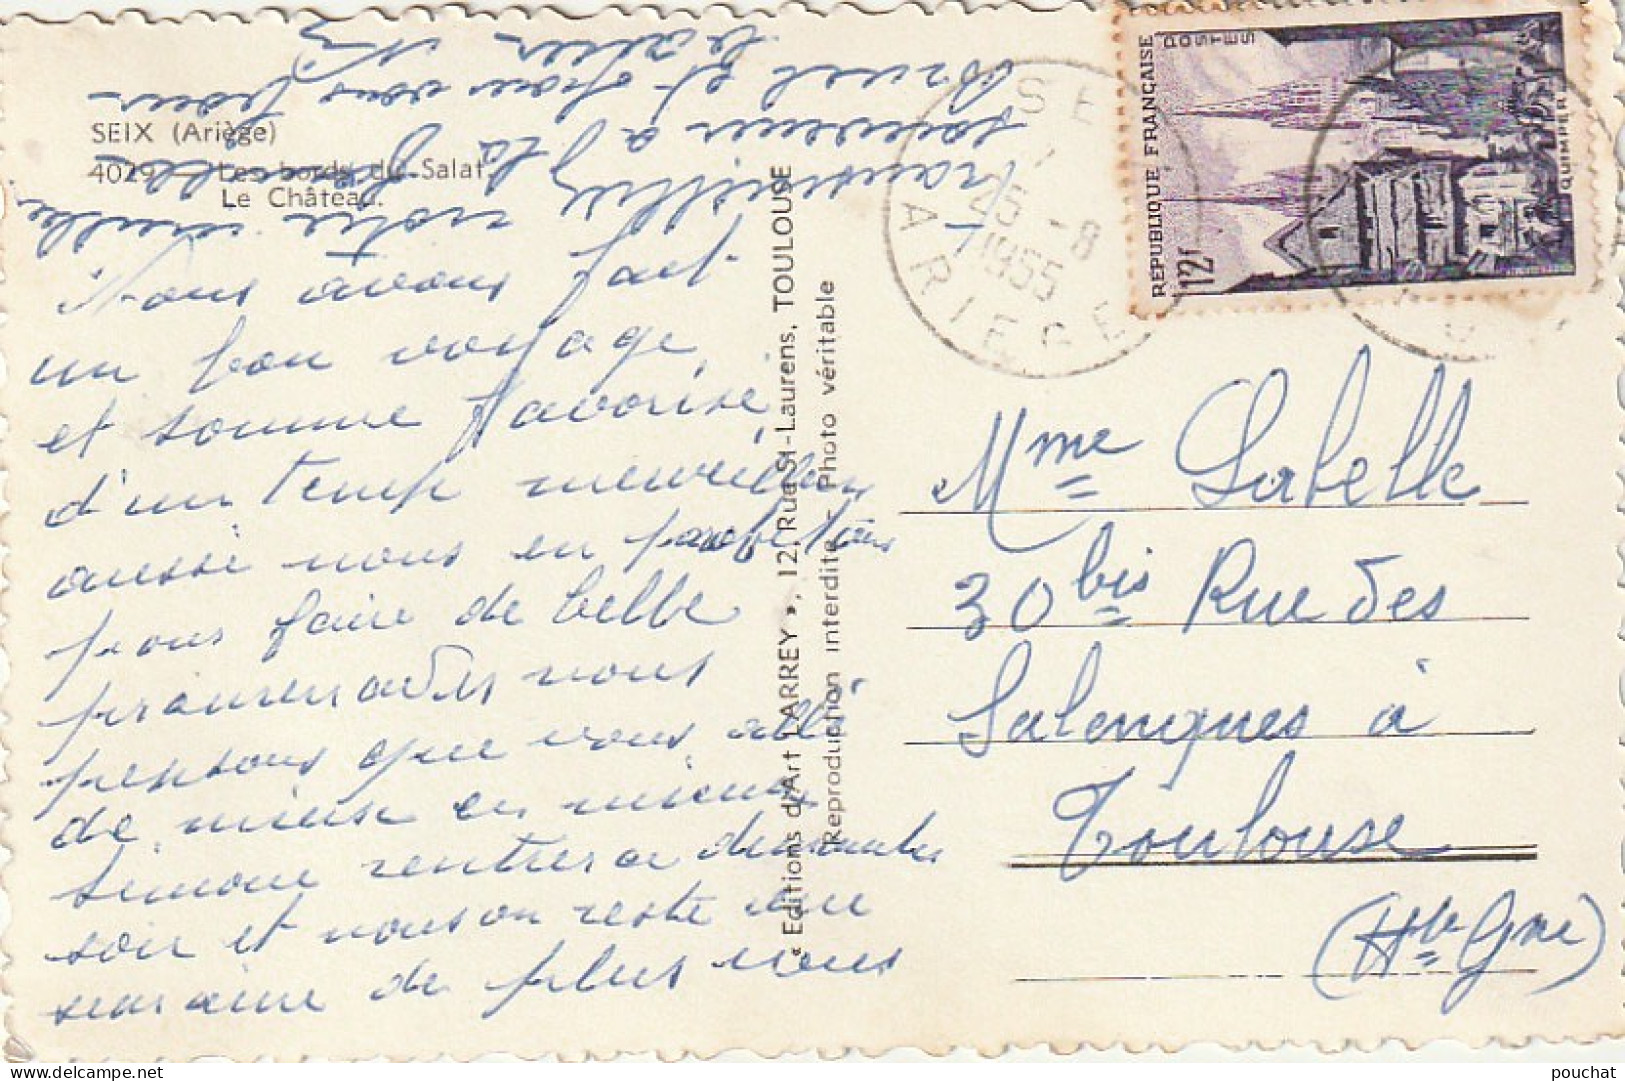 SEIX (Ariège)
4029 - Les bords du Salat
Le Château.
Nous avons fait
un bon voyage,
et somme favorisé,
d'un temp merveilleux
aussi nous en profitons
pour faire de belle
promenades nous
pensons que vous allé
de mieux en mieux
Simone rentrera dimanche
soir et nous on reste une
semaine de plus nous
souvenir à la famille
Bruel et pour vous deux
« Editions d'Art LARREY », 12, Rue St-Laurens, TOULOUSE
Reproduction interdite - Photo véritable
SEIX
25 -8
1955
ARIEGE
RÉPUBLIQUE FRANÇAISE
POSTES
12f
QUIMPER
Mme Labelle
30 bis Rue des
Salenques à
Toulouse
(Hte Gne)
pouchat